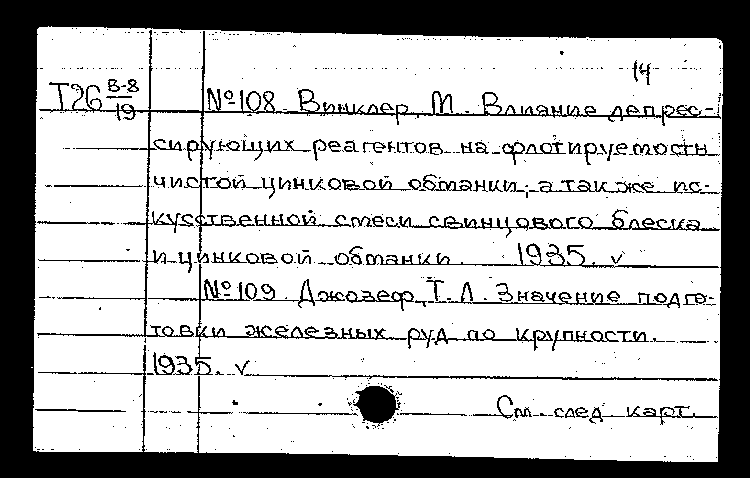 14
Т26 В-8/19 №108 Винклер, М. Влияние депрес-
сирующих реагентов на флотируемость
чистой цинковой обманки, а также ис-
кусственной смеси свинцового блеска
и цинковой обманки. 1935. v
№109 Джозеф, Т. Л. Значение подго-
товки железных руд по крупности.
1935. v
См. след. карт.